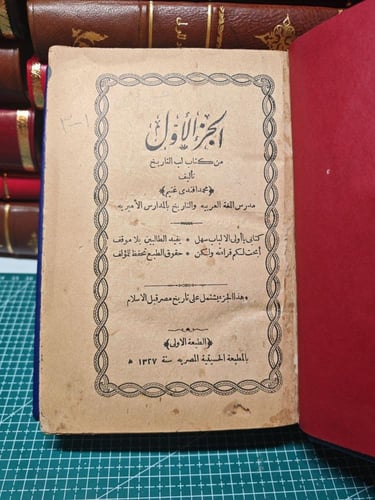 الجزء الأول
من كتاب لب التاريخ
تأليف
﴿محمد افندى غنيم﴾
مدرس اللغة العربيه والتاريخ بالمدارس الأميريه
كتابى ياأولى الالباب سهل * يفيد الطالبين بلا موقف
أبحت لكم قراءته ولكن * حقوق الطبع تحفظ للمؤلف
* هذا الجزء يشتمل على تاريخ مصر قبل الاسلام *
﴿الطبعة الاولى﴾
بالمطبعة الحسينية المصريه سنة ١٣٢٧ ه